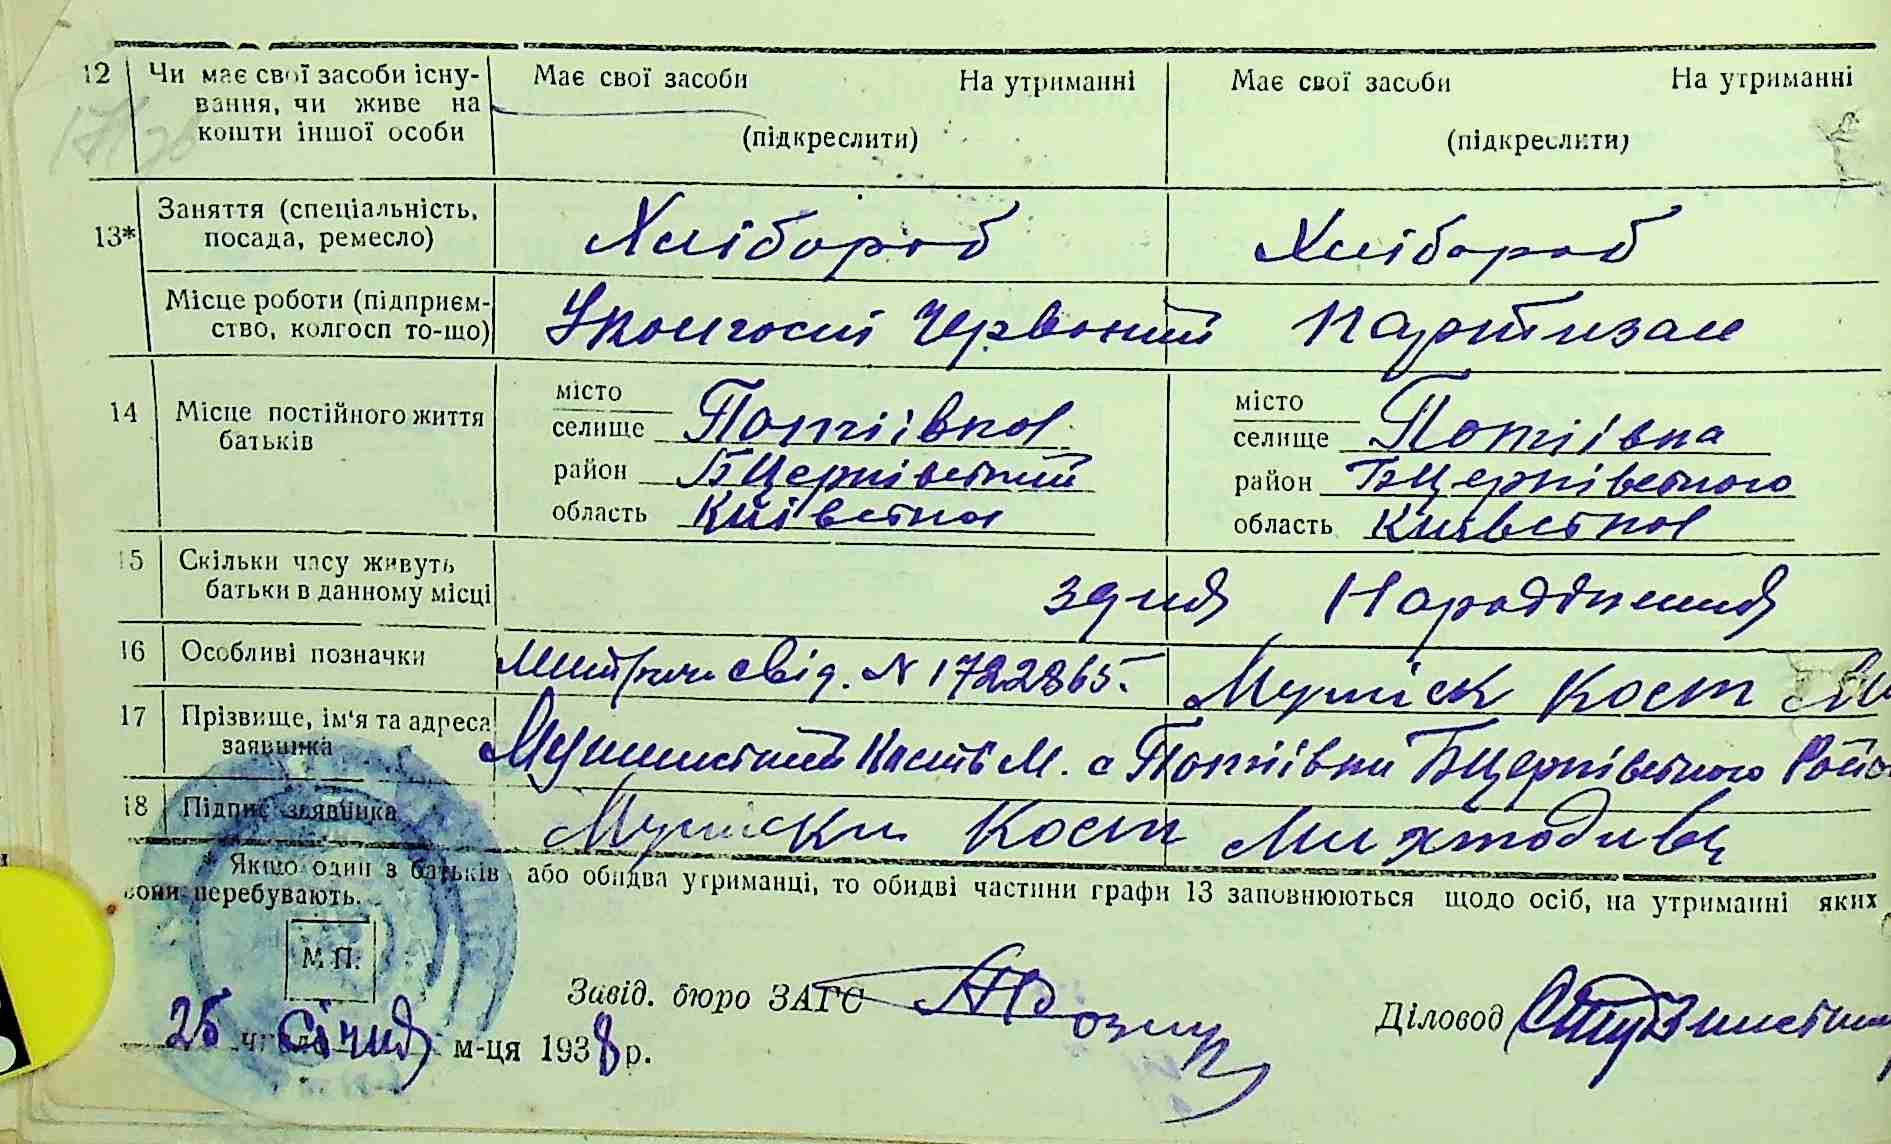 12 Чи має свої засоби існу- Має свої засоби На утриманні Має свої засоби На утриманні
вання, чи живе на
кошти іншої особи (підкреслити) (підкреслити)
13* Заняття (спеціальність, Хлібороб Хлібороб
посада, ремесло)
Місце роботи (підприєм- Уколгоспі Червоний Партизан
ство, колгосп то-що)
14 Місце постійного життя місто місто
батьків селище Потіївка селище Потіївка
район БЦерківський район БЦерківського
область Київська область Київська
15 Скільки часу живуть здня Народження
батьки в данному місці
16 Особливі позначки свід. N 1722865. Кост
17 Прізвище, ім'я та адреса М. с Потіївки БЦерківського
заявника
18 Підпис заявника Кост
* Якщо один з батьків або обидва утриманці, то обидві частини графи 13 заповнюються щодо осіб, на утриманні яких
вони перебувають.
М. П.
Завід. бюро ЗАГС Діловод
25 числа Січня м-ця 1938 р.